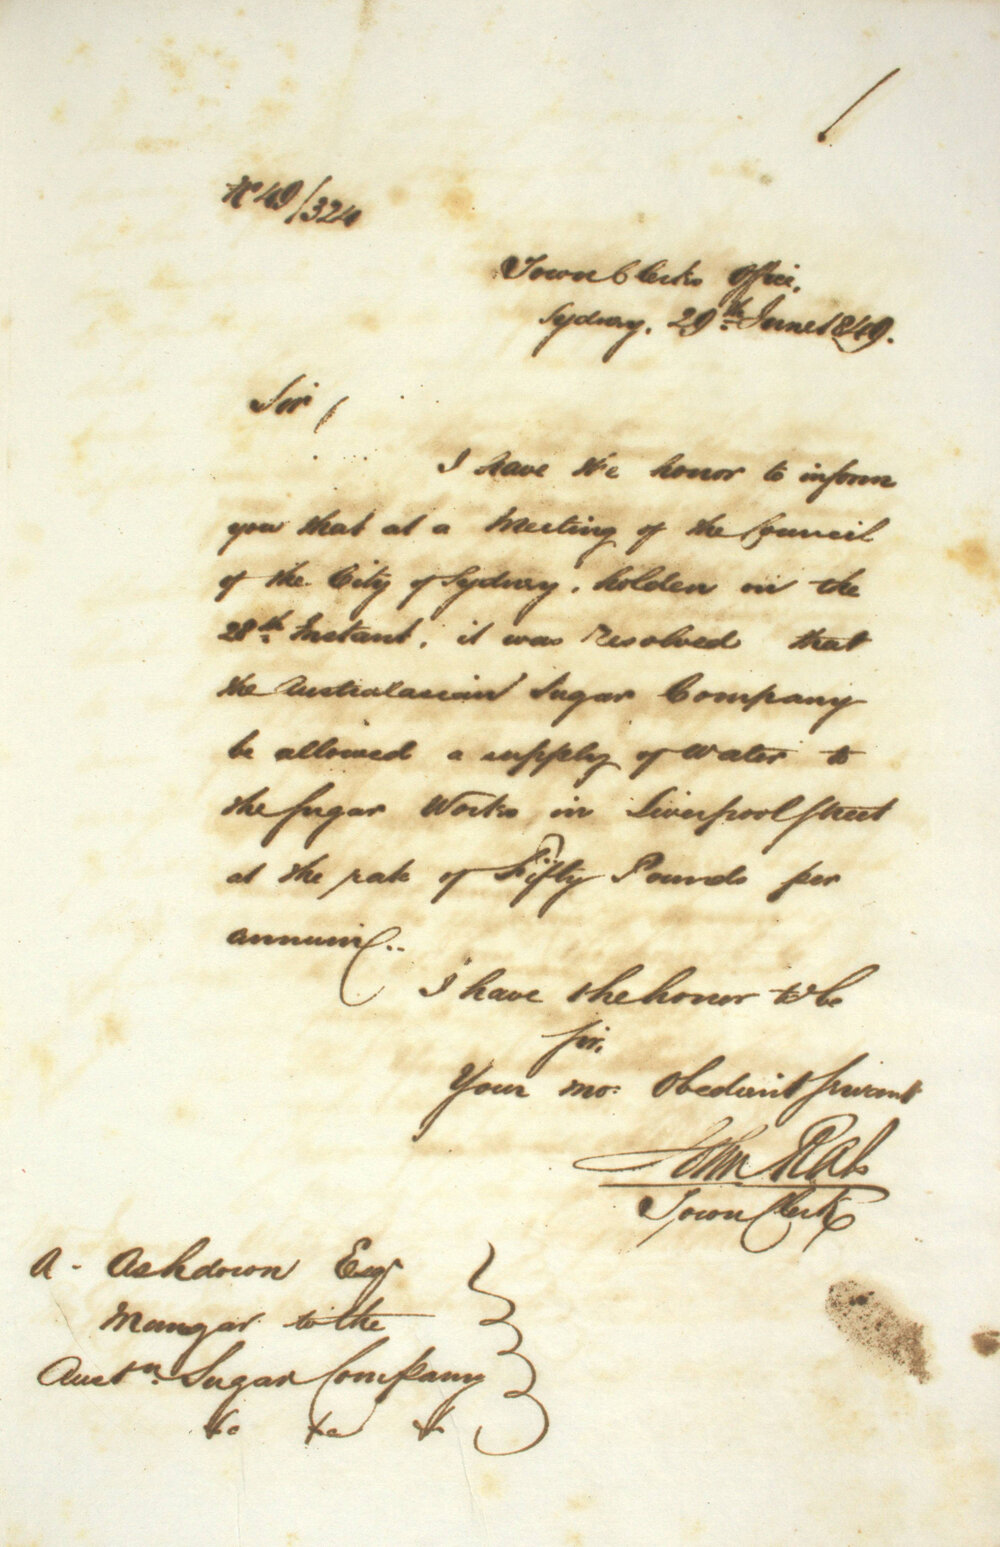 No 49/324
Town Clerks Office,
Sydney, 29th June 1849.
Sir,
I have the honor to inform
you that at a Meeting of the Council
of the City of Sydney, holden on the
28th Instant, it was Resolved that
the Australasian Sugar Company
be allowed a supply of Water to
the Sugar Works in Liverpool Street
at the rate of Fifty Pounds per
annum.
I have the honor to be
Sir,
Your mo: Obedient Servant
John Rae
Town Clerk
A. Ashdown Esqr
Manger to the
Austn. Sugar Company
&c &c &c